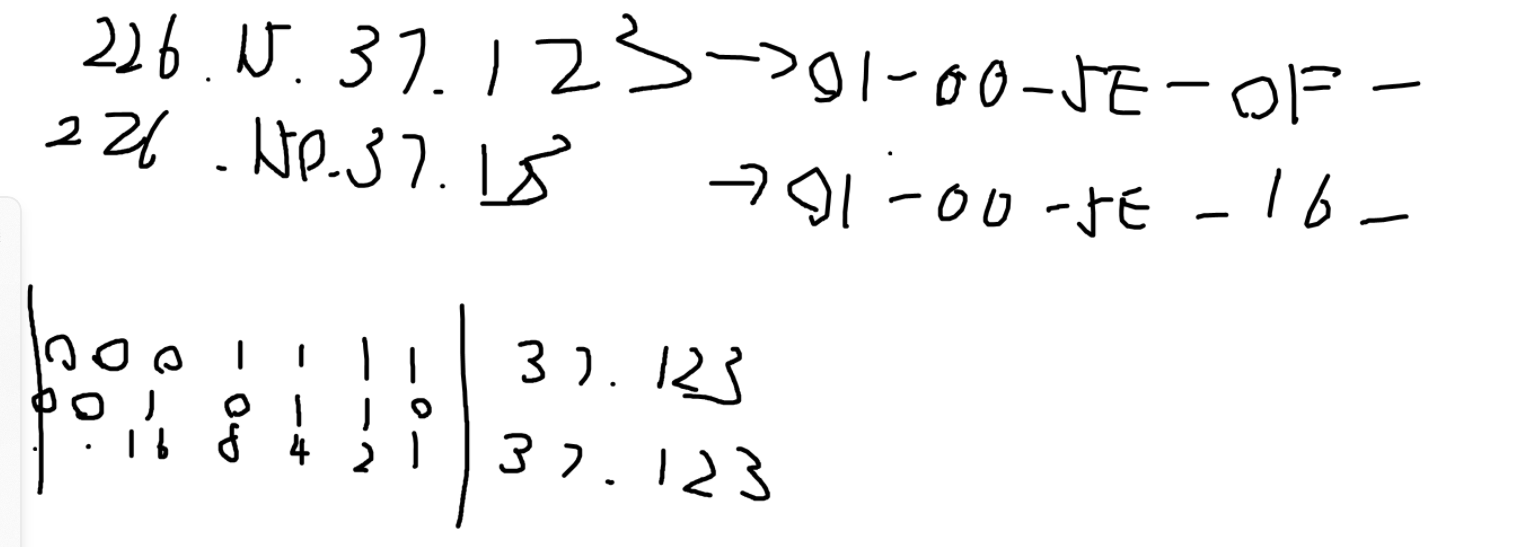 226. 15. 37. 123 → 01-00-5E-0F-
226. 150. 37. 123 → 01-00-5E-16-
0 0 0 1 1 1 1 | 37. 123
0 0 1 0 1 1 0
16 8 4 2 1 | 37. 123